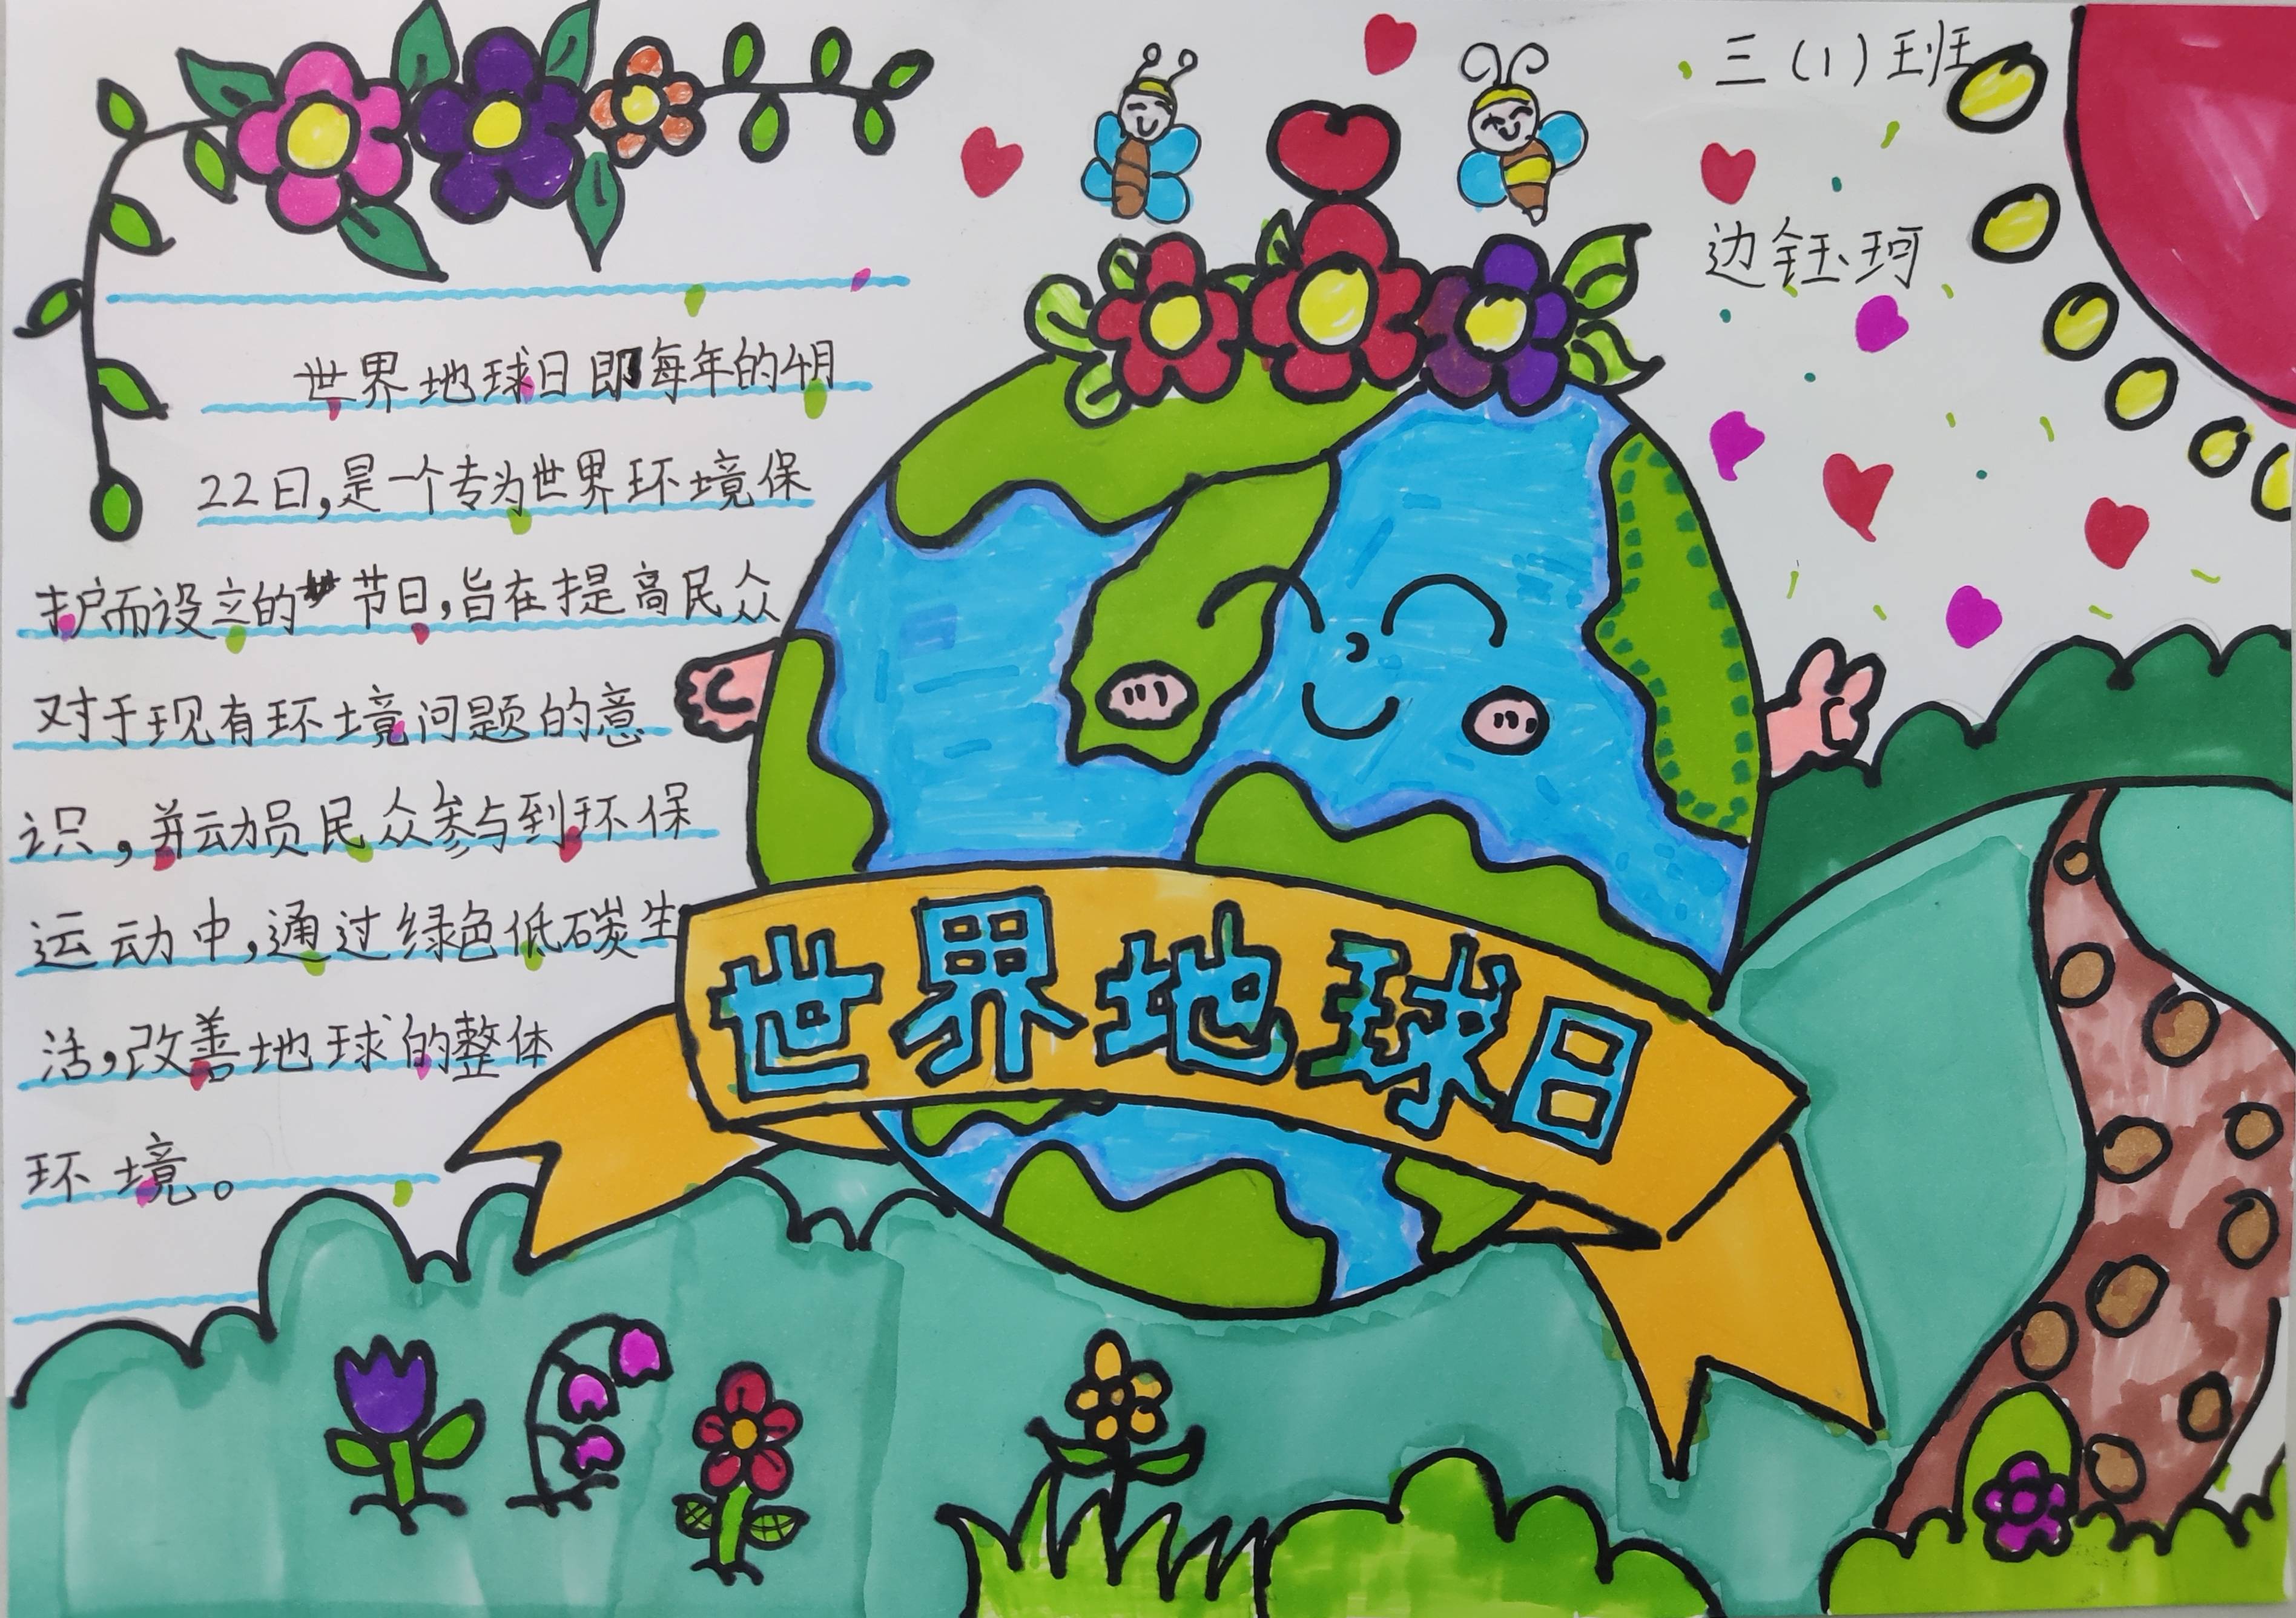 三(1)班
边钰珂
世界地球日即每年的4月
22日,是一个专为世界环境保
护而设立的节日,旨在提高民众
对于现有环境问题的意
识,并动员民众参与到环保
运动中,通过绿色低碳生
活,改善地球的整体
环境。
世界地球日